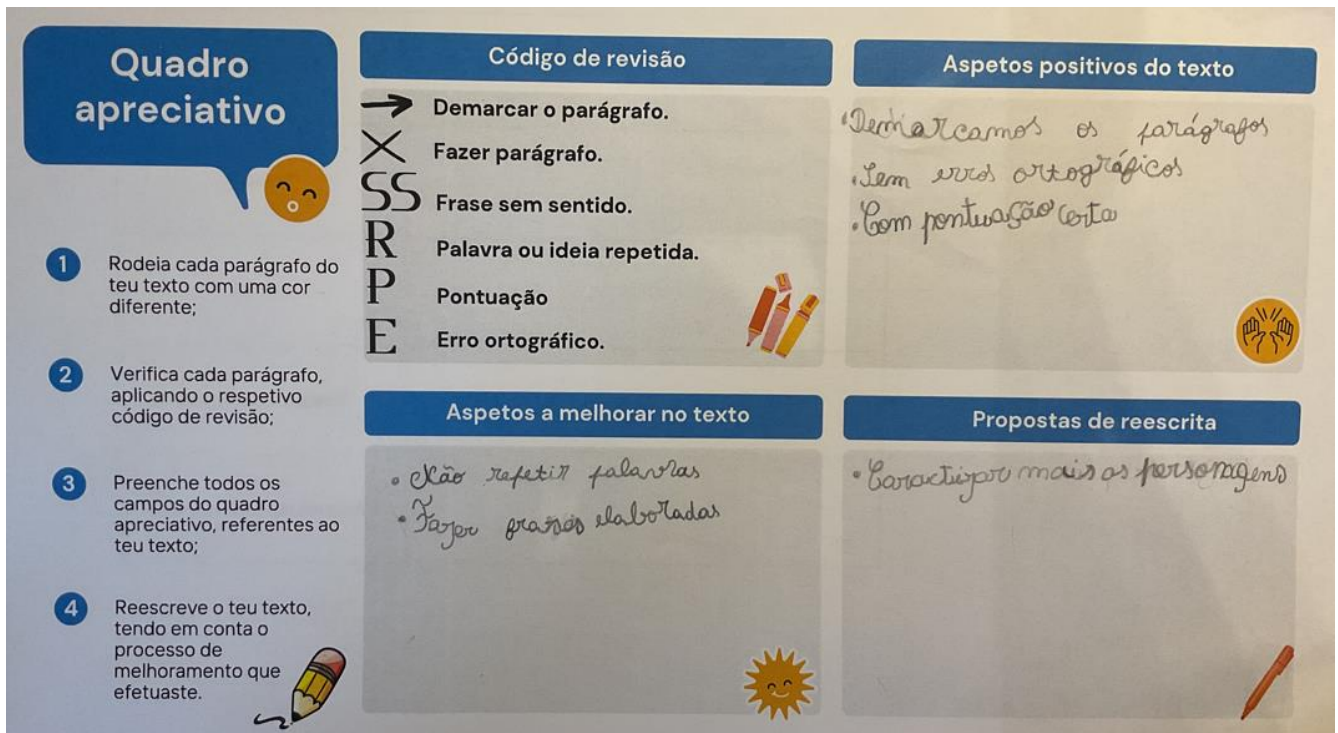 Quadro
apreciativo
1 Rodeia cada parágrafo do
teu texto com uma cor
diferente;
2 Verifica cada parágrafo,
aplicando o respetivo
código de revisão;
3 Preenche todos os
campos do quadro
apreciativo, referentes ao
teu texto;
4 Reescreve o teu texto,
tendo em conta o
processo de
melhoramento que
efetuaste.
Código de revisão
→ Demarcar o parágrafo.
X Fazer parágrafo.
SS Frase sem sentido.
R Palavra ou ideia repetida.
P Pontuação
E Erro ortográfico.
Aspetos positivos do texto
• Demarcamos os parágrafos
• Sem erros ortográficos
• Com pontuação certa
Aspetos a melhorar no texto
• Não repetir palavras
• Fazer frases elaboradas
Propostas de reescrita
• mais as personagens